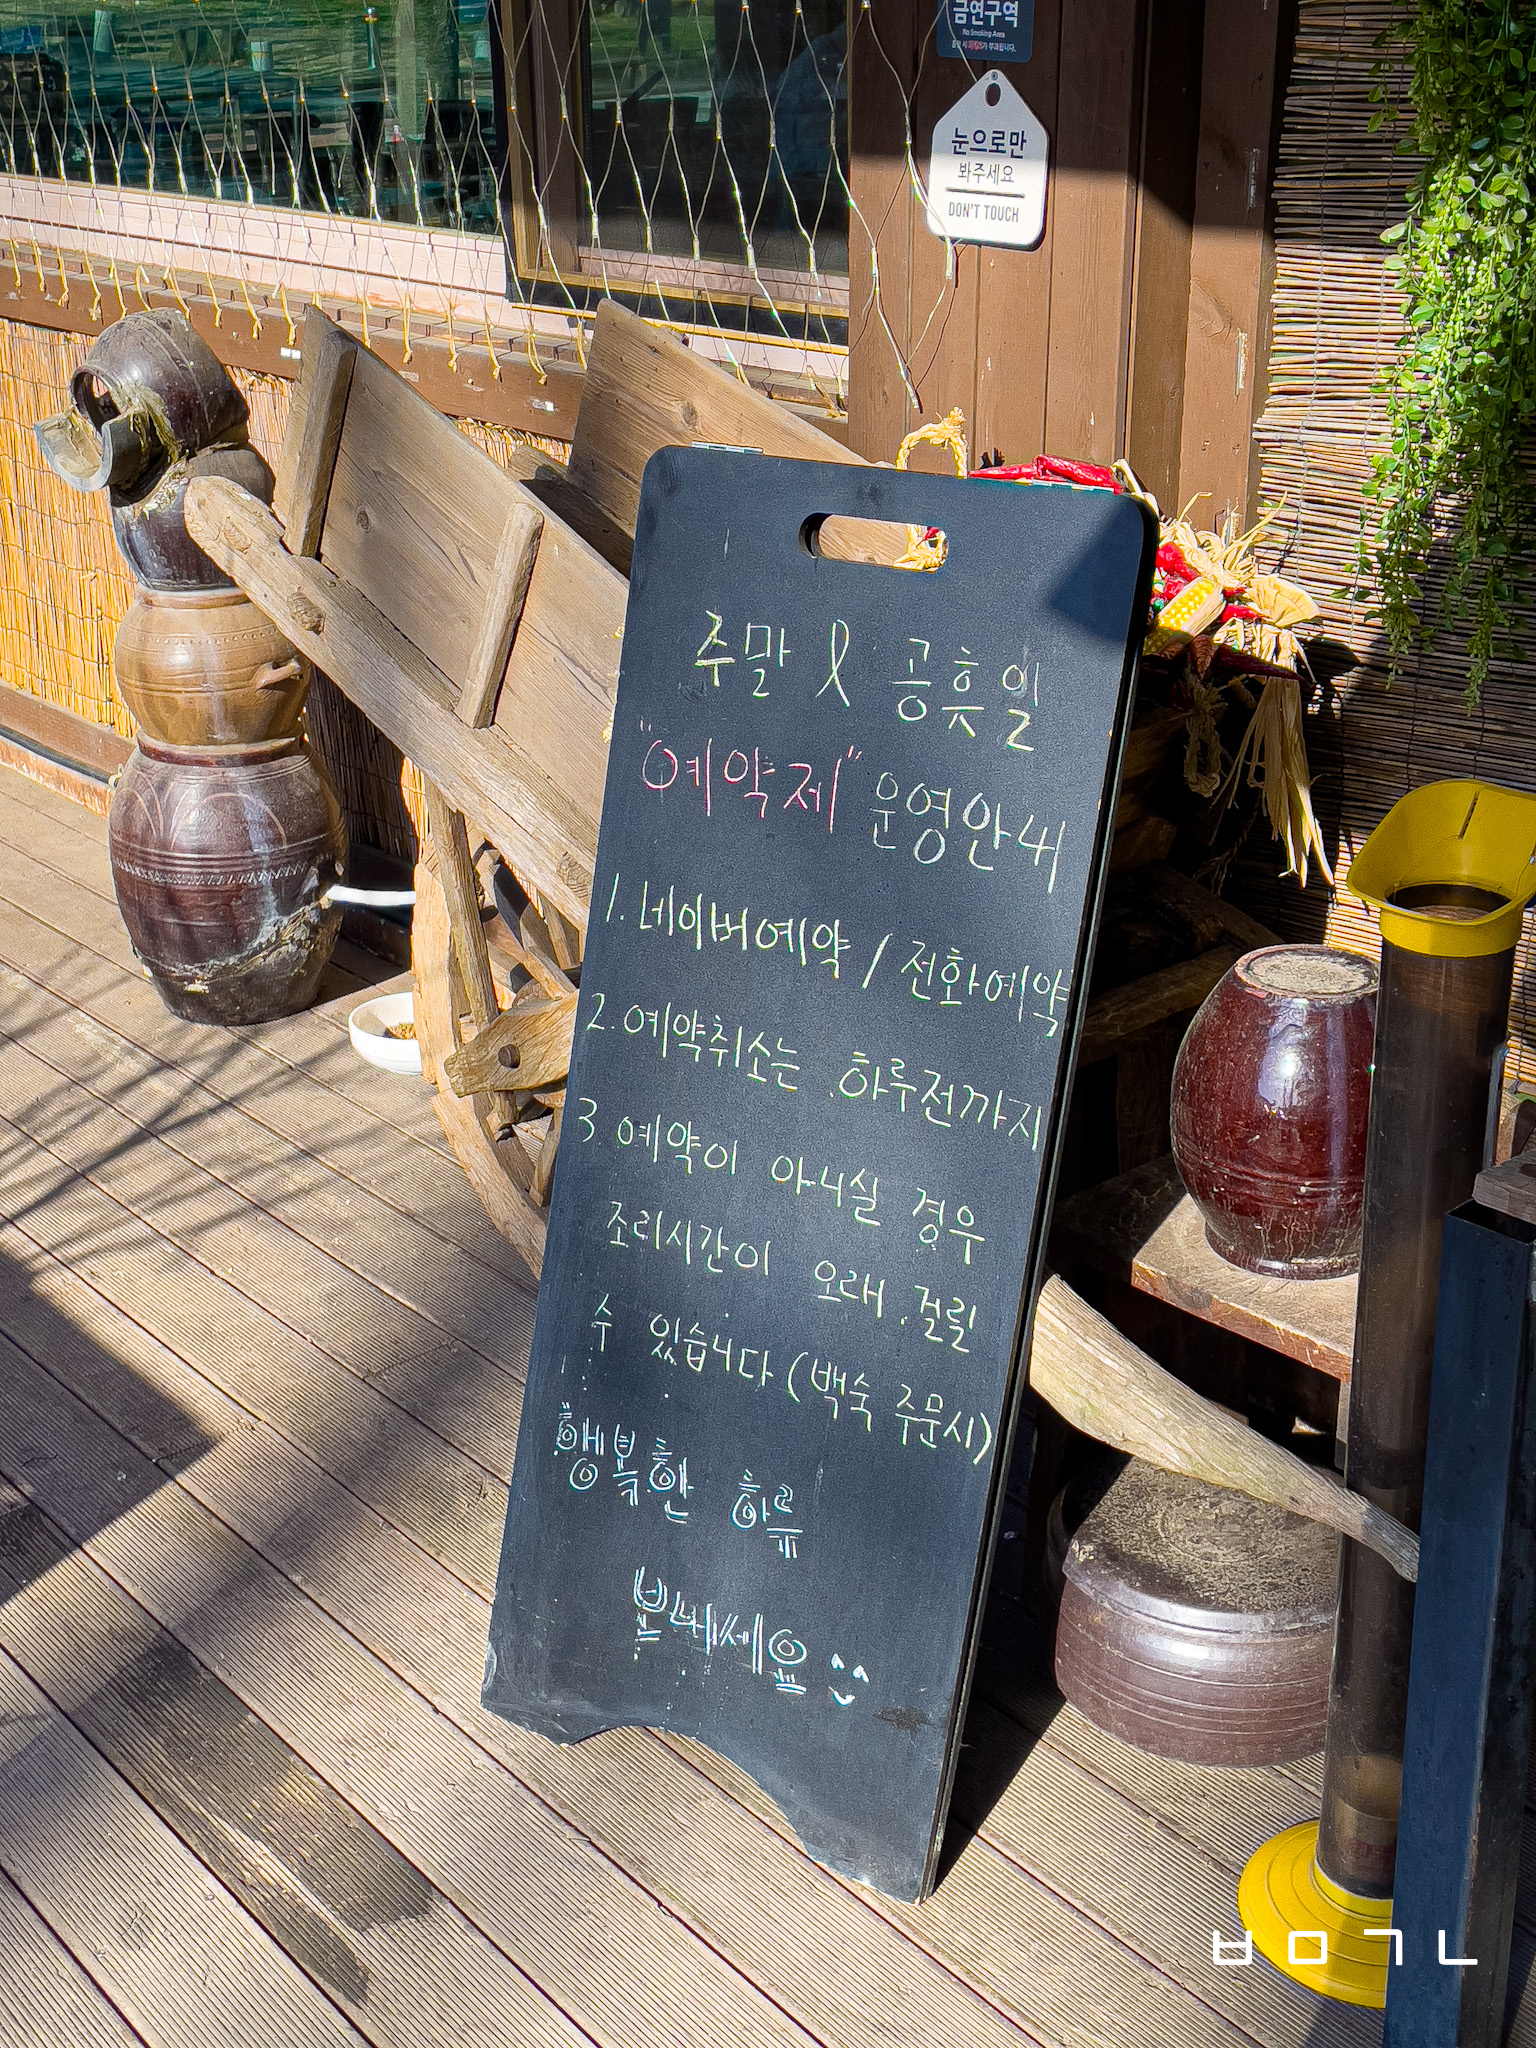 금연구역
No Smoking Area
눈으로만
봐주세요
DON'T TOUCH
주말 & 공휴일
"예약제" 운영안내
1. 네이버예약 / 전화예약
2. 예약취소는 하루전까지
3 예약이 아니실 경우
조리시간이 오래 걸릴
수 있습니다 (백숙 주문시)
행복한 하루
보내세요
ㅂㅁㄱㄴ